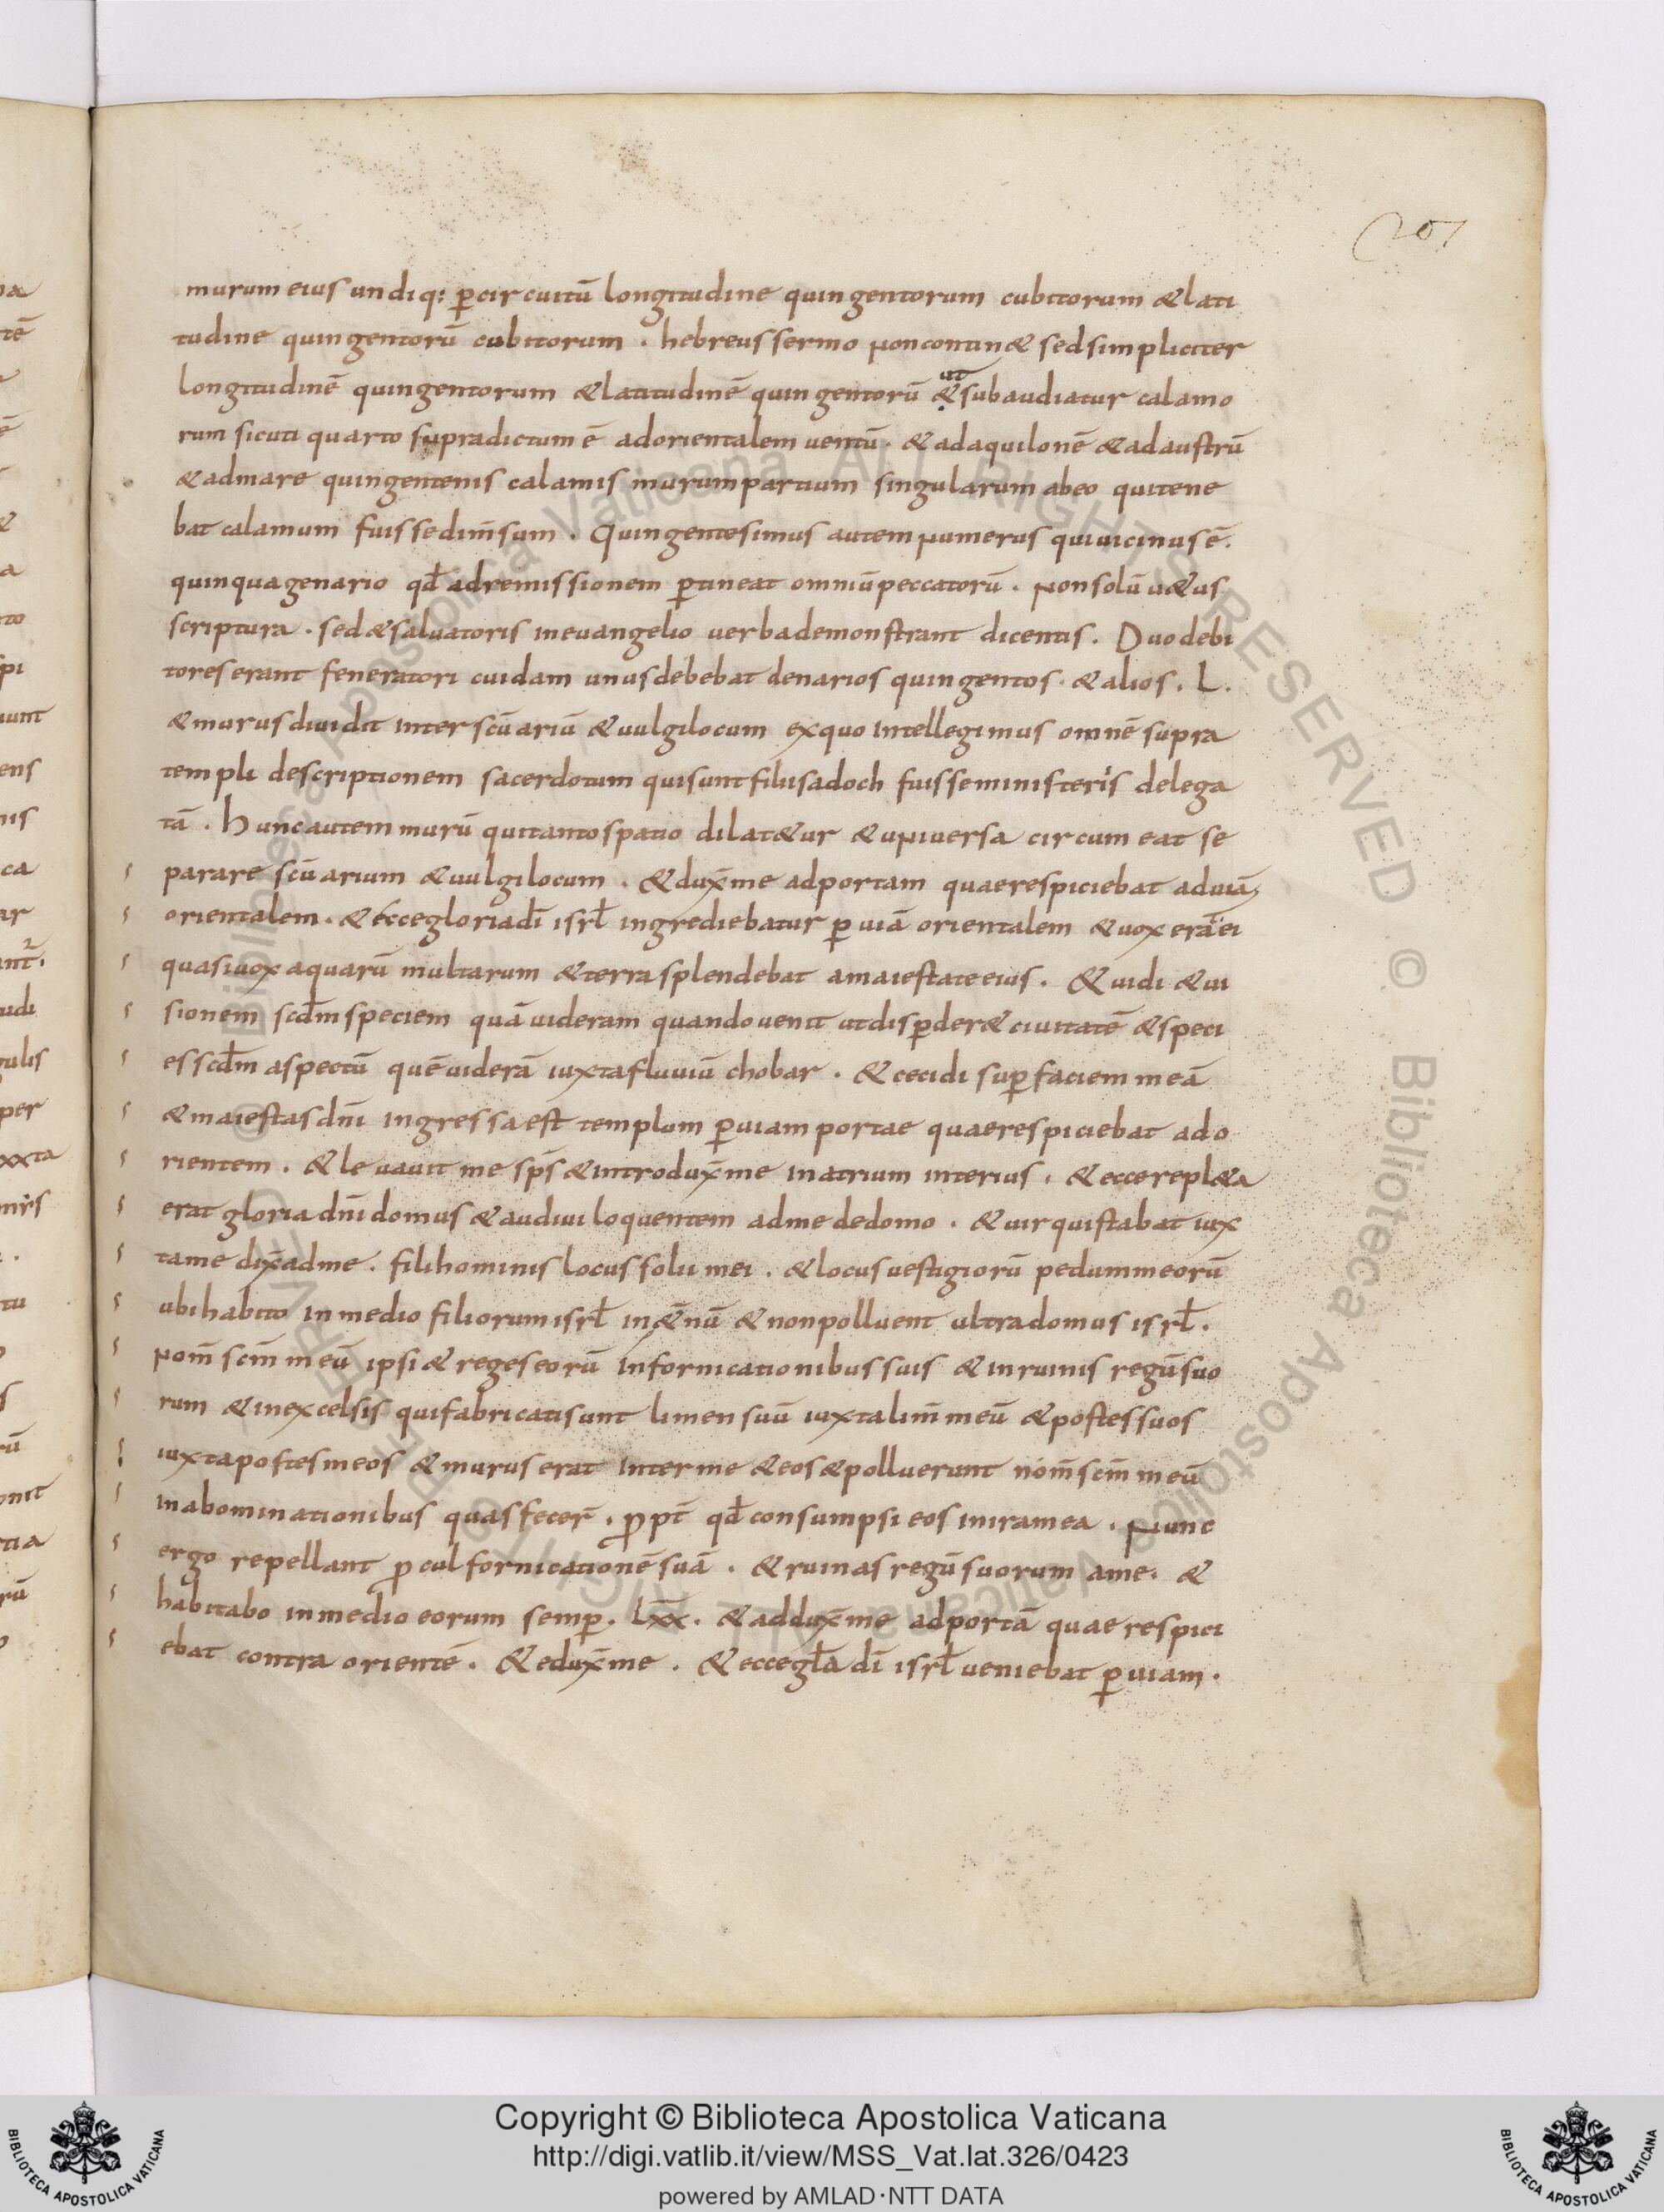 207
murum eius undiq; p̱circuitū longitudine quingentorum cubitorum & lati
tudine quingentorū cubitorum . hebreus sermo non contin& sed simpliciter
longitudinē quingentorum & latitudinē quingentorū & ut subaudiatur calamo
rum sicuti quarto supradictum ē ad orientalem uentū . & ad aquilonē & ad austrū
& ad mare quingentenis calamis murum partium singularum ab eo qui tene
bat calamum fuisse dim̄sum . Quingentesimus autem numerus qui uicinus ē .
quinquagenario qđ ad remissionem p̱tineat omniū peccatorū . non solū u&us
scriptura . sed & saluatoris in euangelio uerba demonstrant dicentis . Duo debi
tores erant feneratori cuidam unus debebat denarios quingentos . & alios . L .
& murus diuidit inter scūariū & uulgi locum ex quo intellegimus omnē supra
templi descriptionem sacerdotum qui sunt filii sadoch fuisse ministeriis delega
tā . Hunc autem murū qui tanto spatio dilat&ur & uniuersa circumeat se
parare scūarium & uulgi locum . & dux̄ me ad portam quae respiciebat ad uiā
orientalem . & ecce gloria dī isrł ingrediebatur p̱ uiā orientalem & uox erat ei
quasi uox aquarū multarum & terra splendebat a maiestate eius . & uidi & ui
sionem scđm speciem quā uideram quando uenit ut disp̱der& ciuitatē & speci
es scđm aspectū quē uiderā iuxta fluuiū chobar . & cecidi sup̱ faciem meā
& maiestas dn̄i ingressa est templum p̱ uiam portae quae respiciebat ad o
rientem . & leuauit me sp̄s & introdux̄ me in atrium interius . & ecce repl&a
erat gloria dn̄i domus & audiui loquentem ad me de domo . & uir qui stabat iux
ta me dix̄ ad me . fili hominis locus solii mei . & locus uestigiorū pedum meorū
ubi habito in medio filiorum isrł in &nū & non polluent ultra domus isrł .
nom̄ scm̄ meū ipsi & reges eorū in fornicationibus suis & in ruinis regū suo
rum & in excelsis qui fabricati sunt limen suū iuxta lim̄ meū & postes suos
iuxta postes meos & murus erat inter me & eos & polluerunt nom̄ scm̄ meū
in abominationibus quas fecer̄ . ꝓpt̄ qđ consumpsi eos in ira mea . Nunc
ergo repellant ꝓcul fornicationē suā . & ruinas regū suorum a me . &
habitabo in medio eorum semp̱ . Lxx . & addux̄ me ad portā quae respici
ebat contra orientē . & edux̄ me . & ecce gła dī isrł ueniebat p̱ uiam .
Copyright © Biblioteca Apostolica Vaticana
http://digi.vatlib.it/view/MSS_Vat.lat.326/0423
powered by AMLAD·NTT DATA